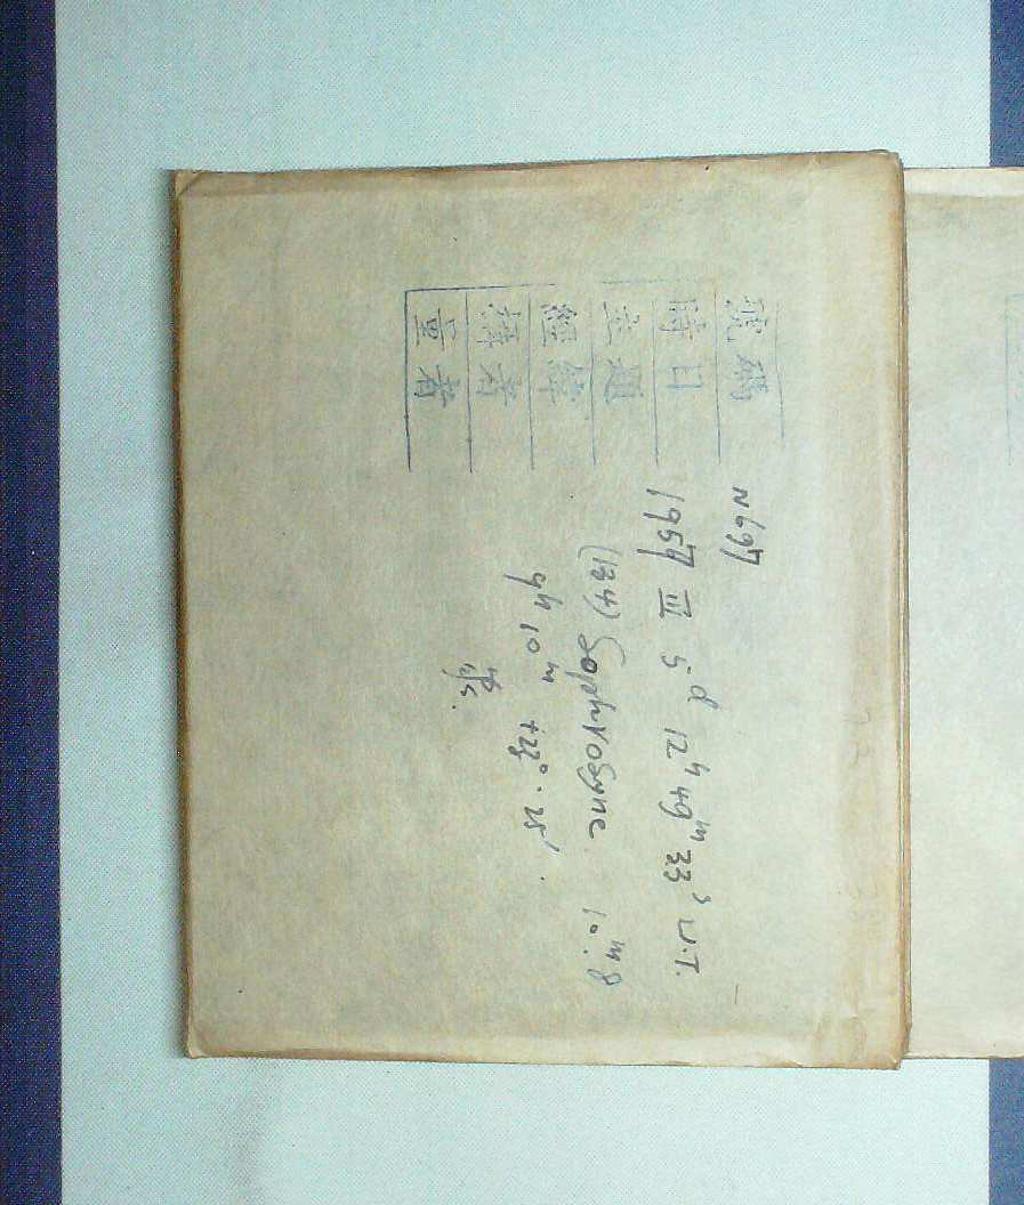 號碼 N697
時日 1957 III 5d 12h 49m 33s U.T.
主題 (134) Sophrosyne. 10.m8
經緯 9h 10m 25'
者
量者